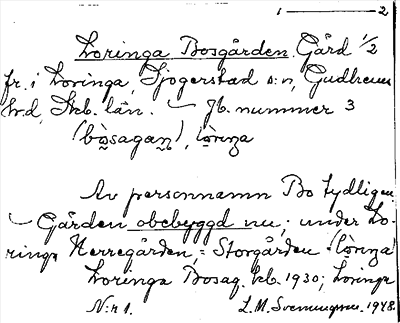 1 — 2
Loringa Bosgården. Gård 1/2
fr. i Loringa, Sjogerstad s:n, Gudhems
h:d, Skb. län. — Jb. nummer 3
(bòsagan), lòriŋa
Av personnamn Bo tydligen
— Gården obebyggd nu; under Lo-
ringa Herregården, = Storgården (lòriŋa)
Loringa Bosag. kb. 1930; Loringa
N:r 1. L. M. Svenungsson. 1948.